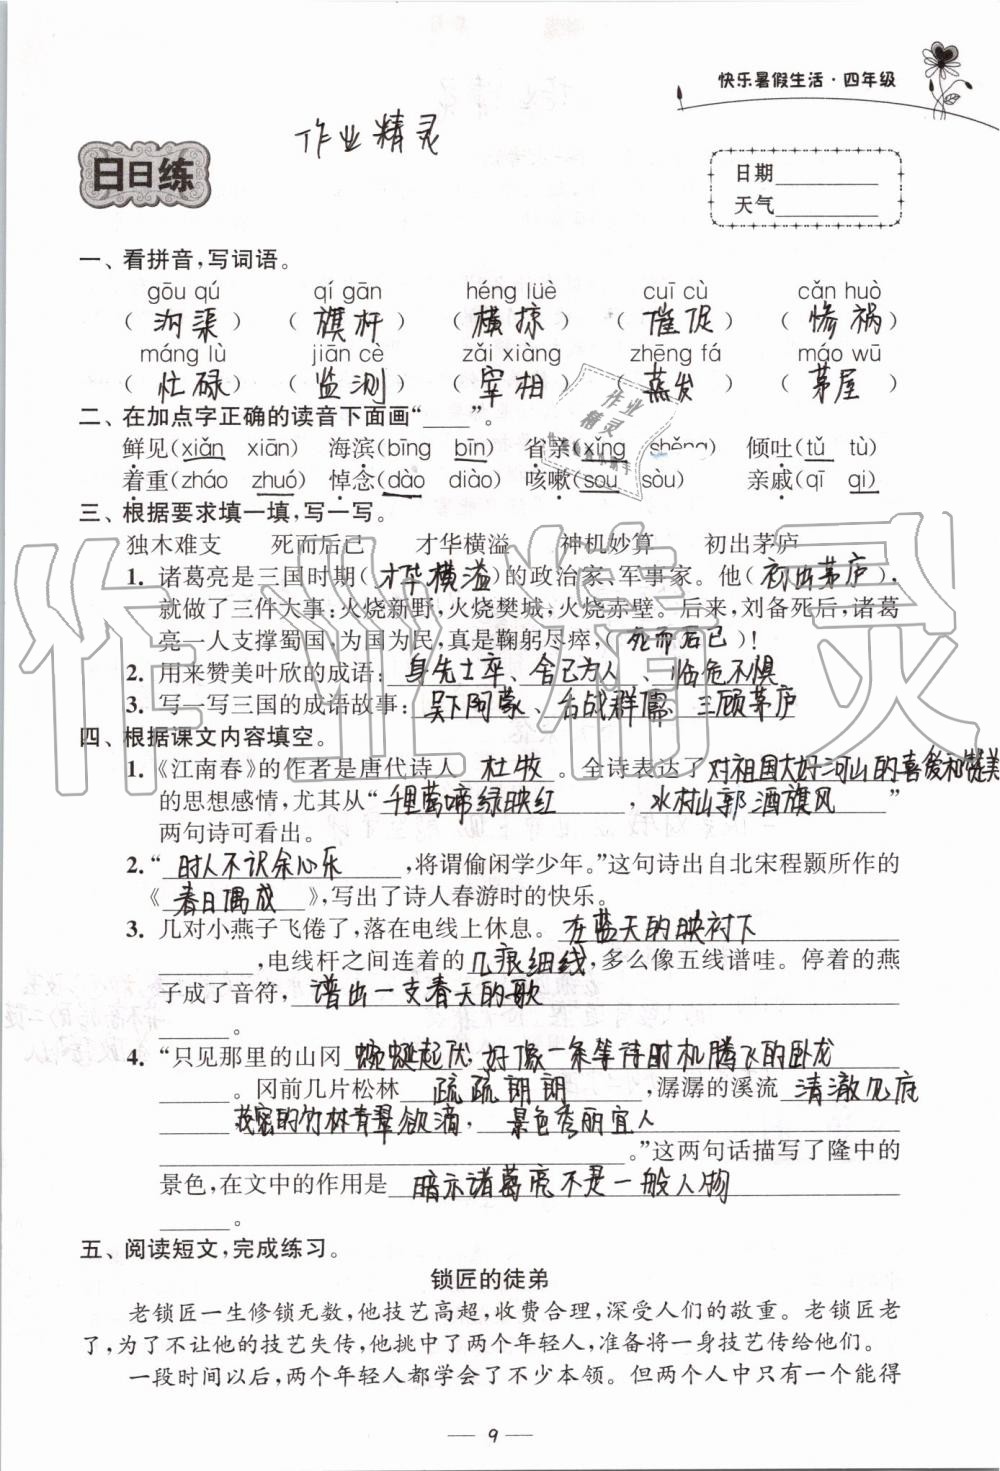 快乐暑假生活·四年级
作业精灵
日日练
日期
天气
一、看拼音,写词语。
gōu qú qí gān héng lüè cuī cù cǎn huò
(沟渠) (旗杆) (横掠) (催促) (惨祸)
máng lù jiān cè zǎi xiàng zhēng fā máo wū
(忙碌) (监测) (宰相) (蒸发) (茅屋)
二、在加点字正确的读音下面画“____”。
鲜见(xiǎn xiān) 海滨(bīng bīn) 省亲(xǐng shěng) 倾吐(tǔ tù)
着重(zháo zhuó) 悼念(dào diào) 咳嗽(sou sòu) 亲戚(qī qi)
三、根据要求填一填,写一写。
独木难支 死而后已 才华横溢 神机妙算 初出茅庐
1. 诸葛亮是三国时期(才华横溢)的政治家、军事家。他(初出茅庐)
就做了三件大事:火烧新野,火烧樊城,火烧赤壁。后来,刘备死后,诸葛
亮一人支撑蜀国,为国为民,真是鞠躬尽瘁,(死而后已)!
2. 用来赞美叶欣的成语:身先士卒、舍己为人、临危不惧
3. 写一写三国的成语故事:吴下阿蒙、舌战群儒 三顾茅庐
四、根据课文内容填空。
1.《江南春》的作者是唐代诗人杜牧。全诗表达了对祖国大好河山的喜爱和赞美
的思想感情,尤其从“千里莺啼绿映红,水村山郭酒旗风”
两句诗可看出。
2. “时人不识余心乐,将谓偷闲学少年。”这句诗出自北宋程颢所作的
《春日偶成》,写出了诗人春游时的快乐。
3. 几对小燕子飞倦了,落在电线上休息。在蓝天的映衬下
,电线杆之间连着的几痕细线,多么像五线谱哇。停着的燕
子成了音符,谱出一支春天的歌
。
4. “只见那里的山冈蜿蜒起伏,好像一条等待时机腾飞的卧龙
。冈前几片松林疏疏朗朗,潺潺的溪流清澈见底
茂密的竹林青翠欲滴,景色秀丽宜人
。”这两句话描写了隆中的
景色,在文中的作用是暗示诸葛亮不是一般人物
。
五、阅读短文,完成练习。
锁匠的徒弟
老锁匠一生修锁无数,他技艺高超,收费合理,深受人们的敬重。老锁匠老
了,为了不让他的技艺失传,他挑中了两个年轻人,准备将一身技艺传给他们。
一段时间以后,两个年轻人都学会了不少本领。但两个人中只有一个能得
9
作业精灵